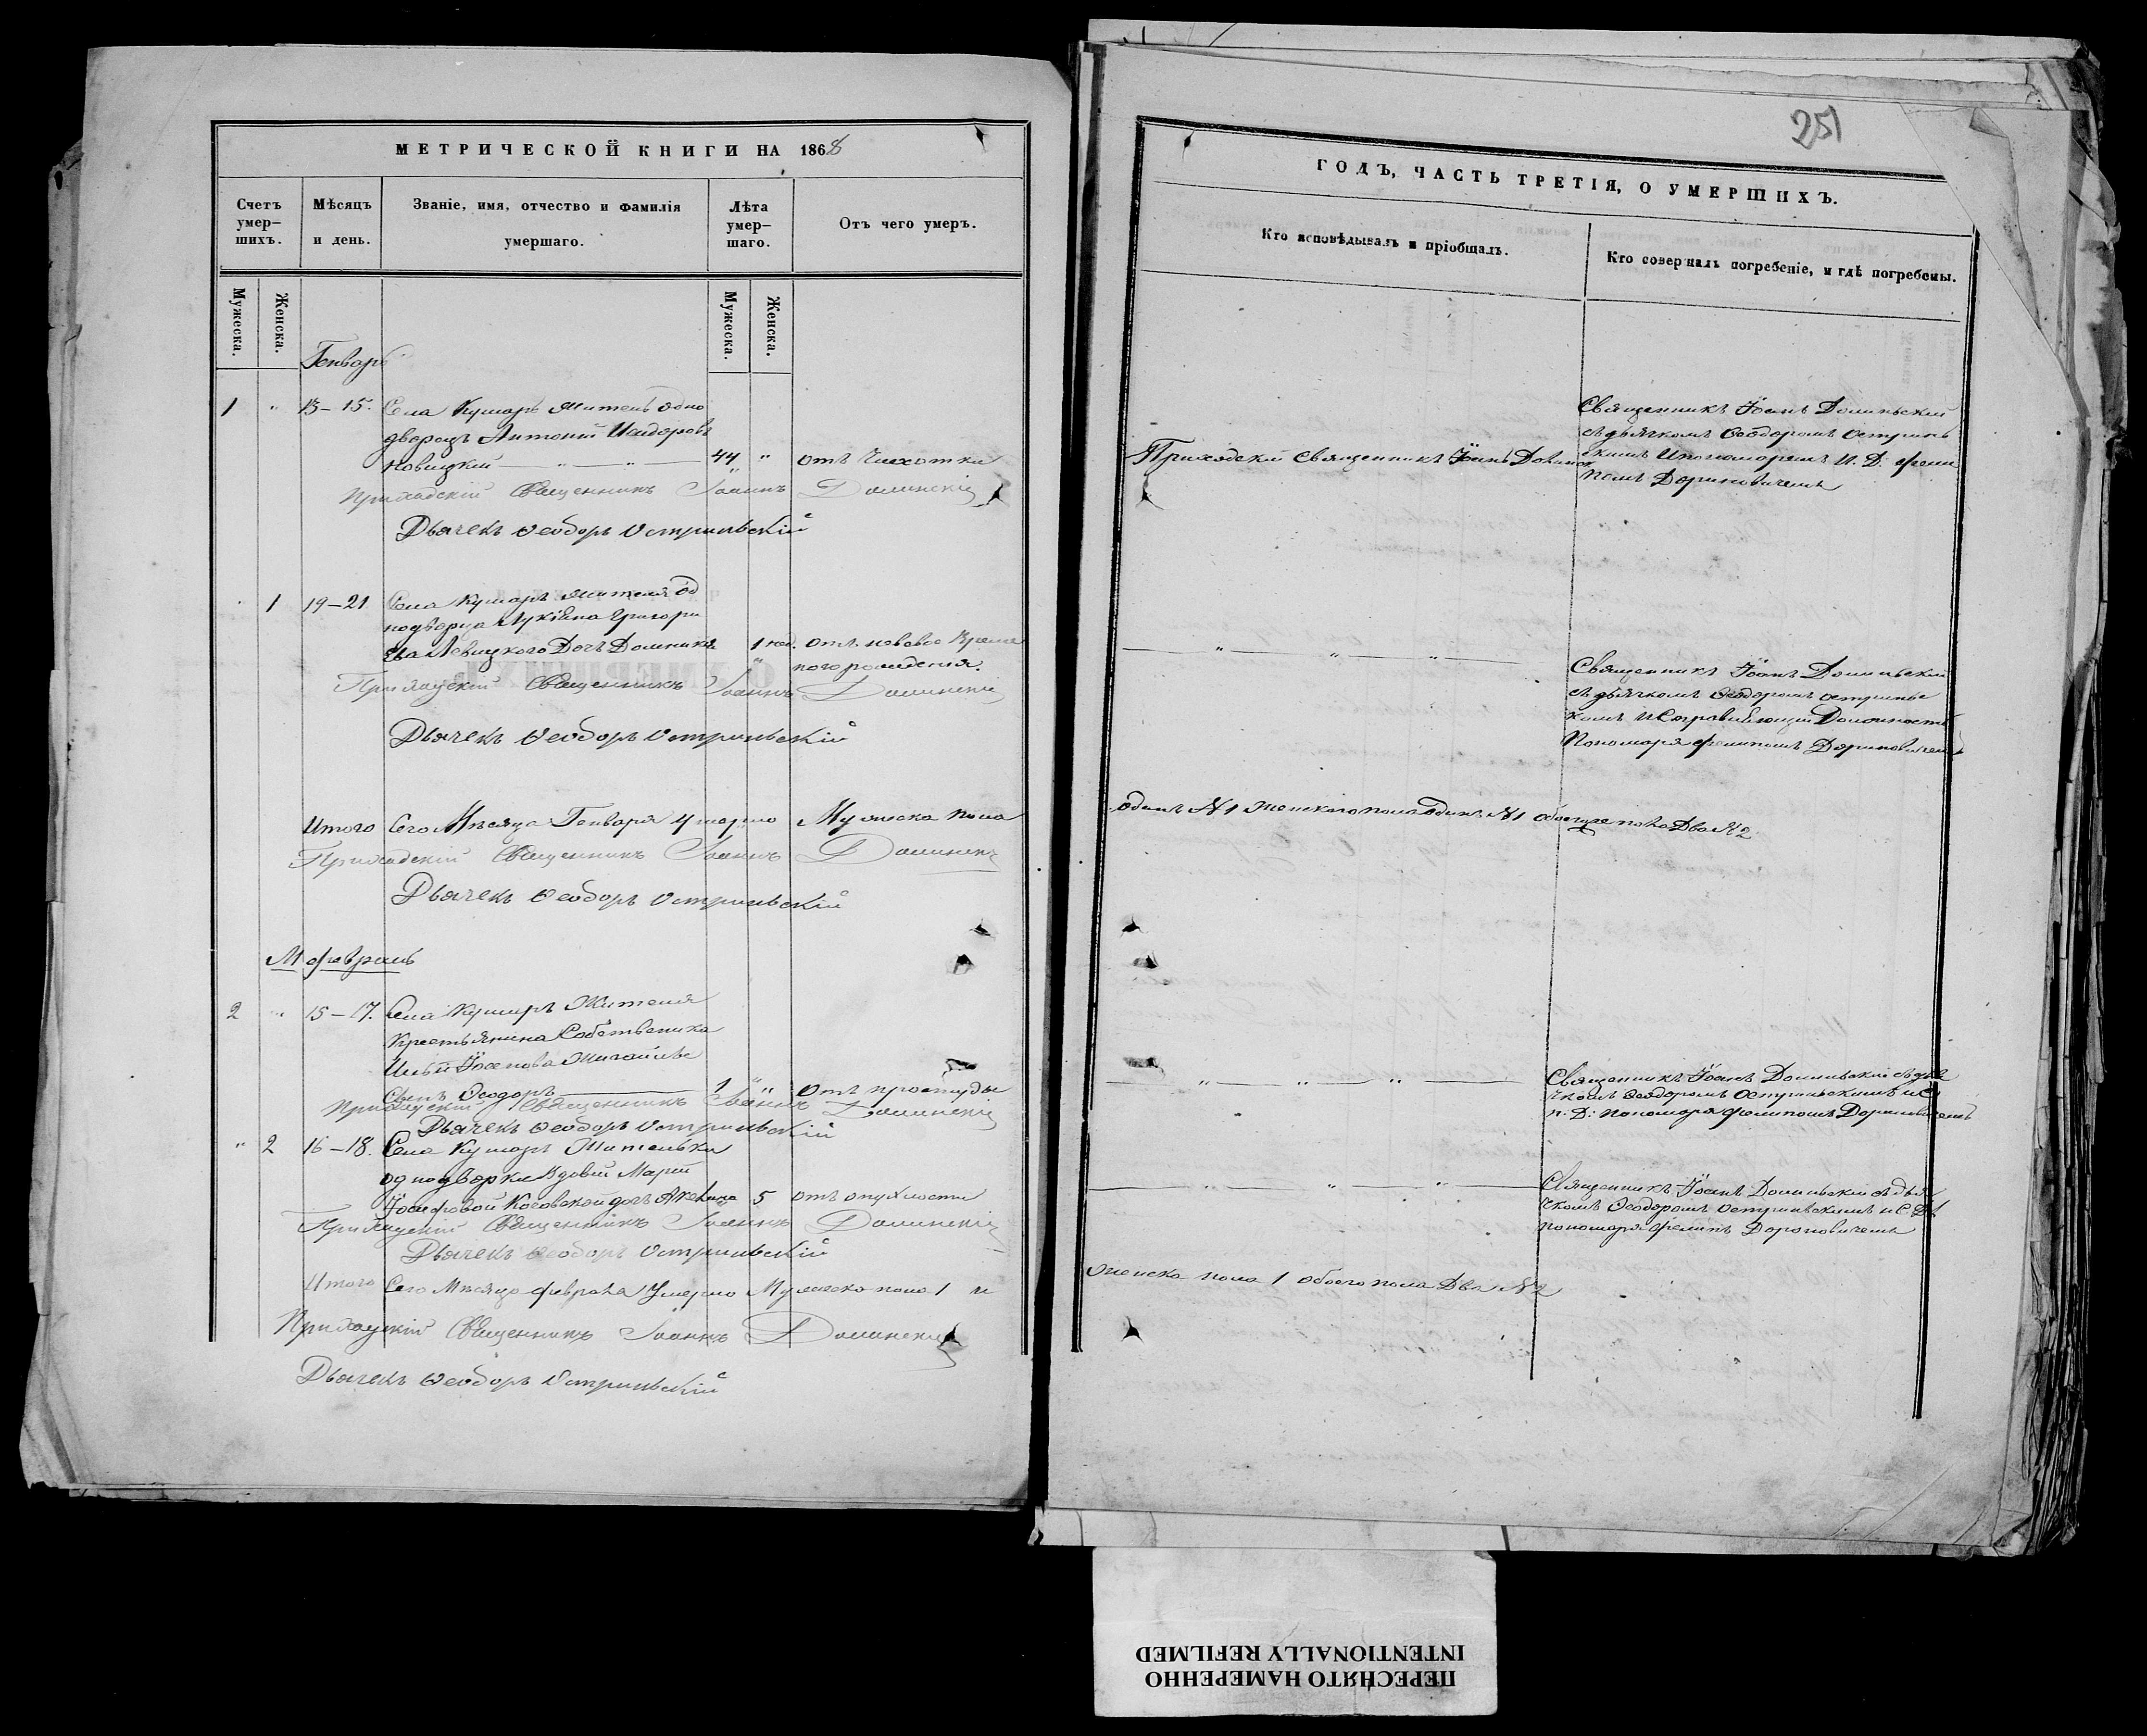 МЕТРИЧЕСКОЙ КНИГИ НА 1868
Счетъ умер-шихъ.
Мѣсяцъ и день.
Званіе, имя, отчество и фамилія умершаго.
Лѣта умер-шаго.
Отъ чего умеръ.
Мужеска.
Женска.
Мужеска.
Женска.
Генварь
1 " 13-15. Села Кушаръ житель одно
дворецъ Антоній Исидоровъ
Новицкий — " — " — 44 " отъ Чихотки
Приходскій Священникъ Іоаннъ Долинскій
Дьячекъ Ѳеодоръ Остриньскій
1 19-21 Села Кушаръ жителя од
нодворца Лукіяна Григори
ева Левицкого Дочь Домникія 1 нед. отъ
ного рождения.
Приходскій Священникъ Іоаннъ Долинскій
Дьячекъ Ѳеодоръ Остриньскій
Итого Сего Мѣсяца Генваря умерло Мужеска пола
Приходскій Священникъ Іоаннъ Долинскій
Дьячекъ Ѳеодоръ Остриньскій
М февраль
2 " 15-17. Села Куширъ Жителя
Крестьянина Собственика
Сынъ Ѳеодоръ — 1 " отъ простуды
Приходскій Священникъ Іоаннъ Долинскій
Дьячекъ Ѳеодоръ Остриньскій
" 2 16-18. Села Кушаръ Жительки
однодворки Вдовы Марій
дочь 5 отъ опухлости
Приходскій Священникъ Іоаннъ Долинскій
Дьячекъ Ѳеодоръ Остриньскій
Итого Сего Мѣсяца февраля Умерло Мужеска пола 1 и
Приходскій Священникъ Іоаннъ Долинскій
Дьячекъ Ѳеодоръ Остриньскій
251
ГОДЪ, ЧАСТЬ ТРЕТІЯ, О УМЕРШИХЪ.
Кто исповѣдывалъ и пріобщалъ.
Кто совершалъ погребеніе, и гдѣ погребены.
Приходский Священникъ Іоанъ Долинск
Священникъ Іоанъ Долиньский
съ дьячкомъ Ѳеодоромъ Остринь
скимъ И. Д. фили
помъ Дориновичемъ
— " — " — " —
Священникъ Іоанъ Долиньский
съ дьячкомъ Ѳеодоромъ Остринье
Должность
Пономаря филипомъ Дориновичемъ
одинъ №1 женскаго пола одинъ №1 обоего пола Два №2
— " — " — " —
Священникъ Іоанъ Долиньский съ дья
чкомъ Ѳеодоромъ Остриньскимъ и
п. Д: пономаря филипомъ Дориновичемъ
— " — " — " —
Священникъ Іоанъ Долиньский съ дья
чкомъ Ѳеодоромъ Остриньскимъ и
пономаря филипъ Дороновичемъ
женска пола 1 обоего пола Два №2
ПЕРЕСНЯТО НАМЕРЕННО
INTENTIONALLY REFILMED